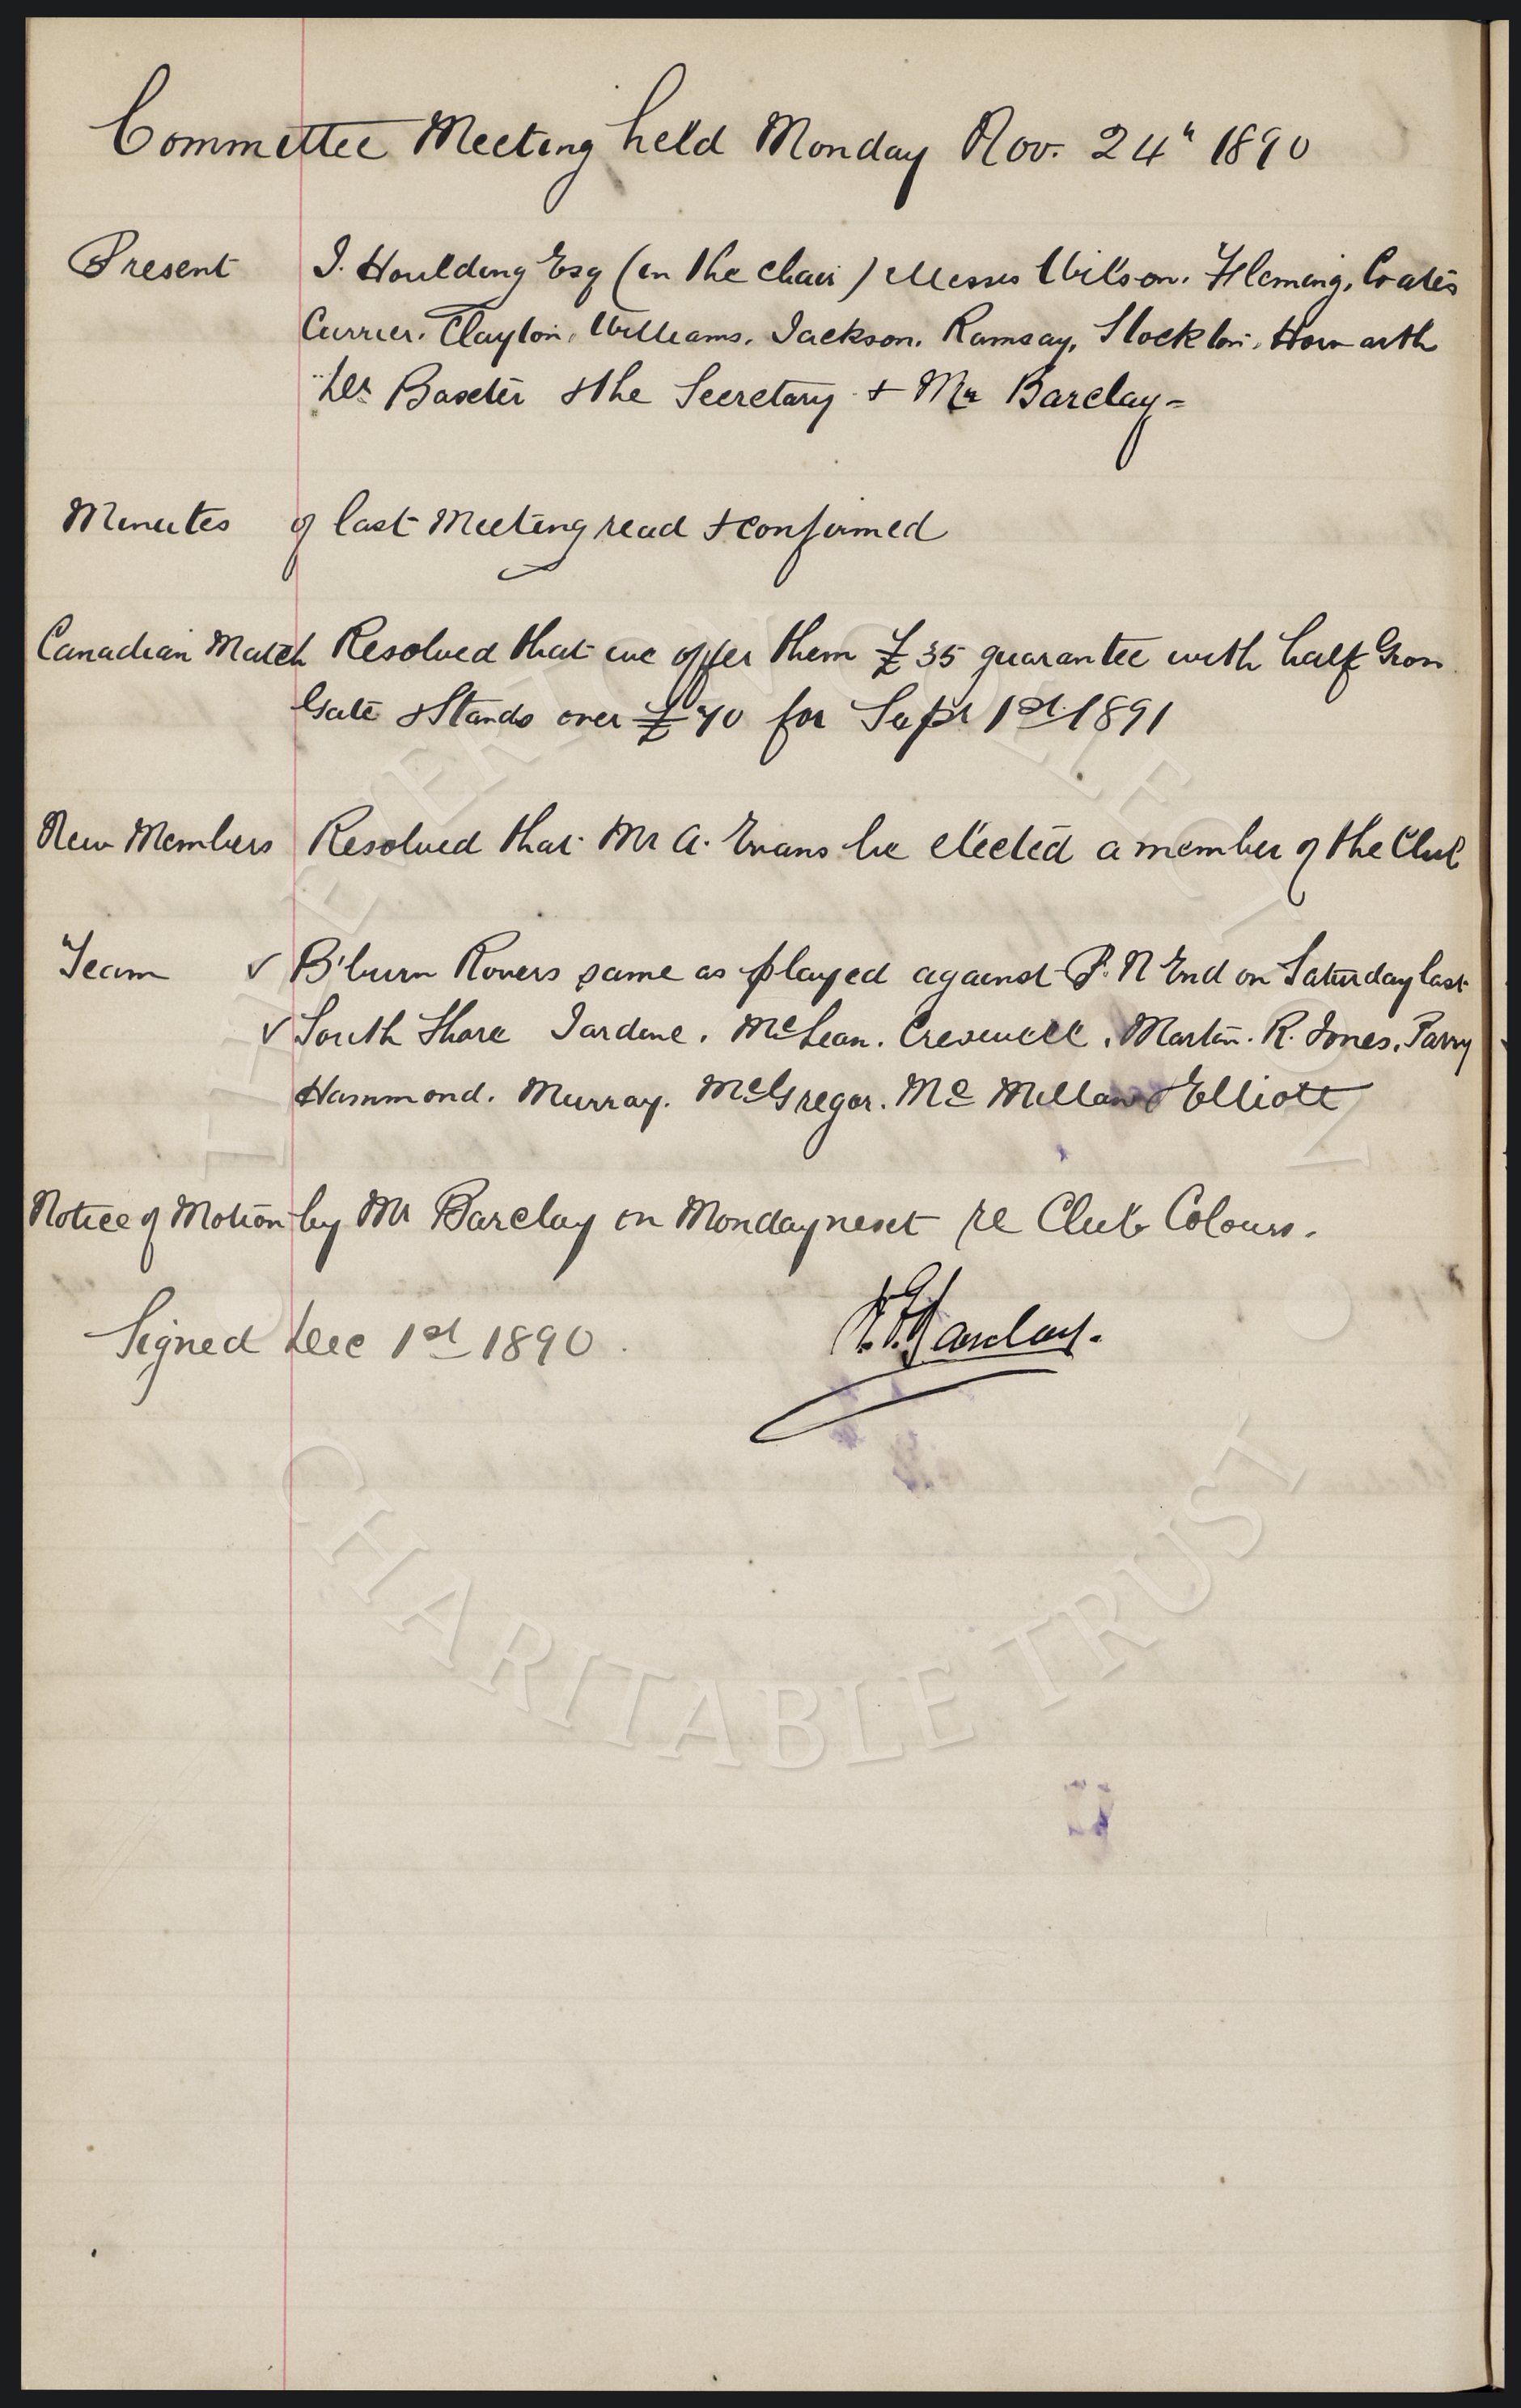 Committee Meeting held Monday Nov. 24" 1890
Present J. Houlding Esq (in the chair) Messrs Wilson, Fleming, Coates
Currier, Clayton, Williams, Jackson, Ramsay, Stockton, Howarth
Dr Baxter & the Secretary & Mr Barclay =
Minutes of last Meeting read & confirmed
Canadian Match Resolved that we offer them £35 guarantee with half Gross
Gate & Stands over £70 for Sepr 1st 1891
New Members Resolved that Mr A. Evans be elected a member of the Club
Team ✓ B'burn Rovers same as played against P. N End on Saturday last
✓ South Shore Jardine. McLean. Cresswell. Martin. R. Jones. Parry
Hammond. Murray. McGregor. Mc Millan & Elliott
Notice of Motion by Mr Barclay on Monday next re Club Colours.
Signed Dec 1st 1890. Barclay.
THE EVERTON COLLECTION
CHARITABLE TRUST